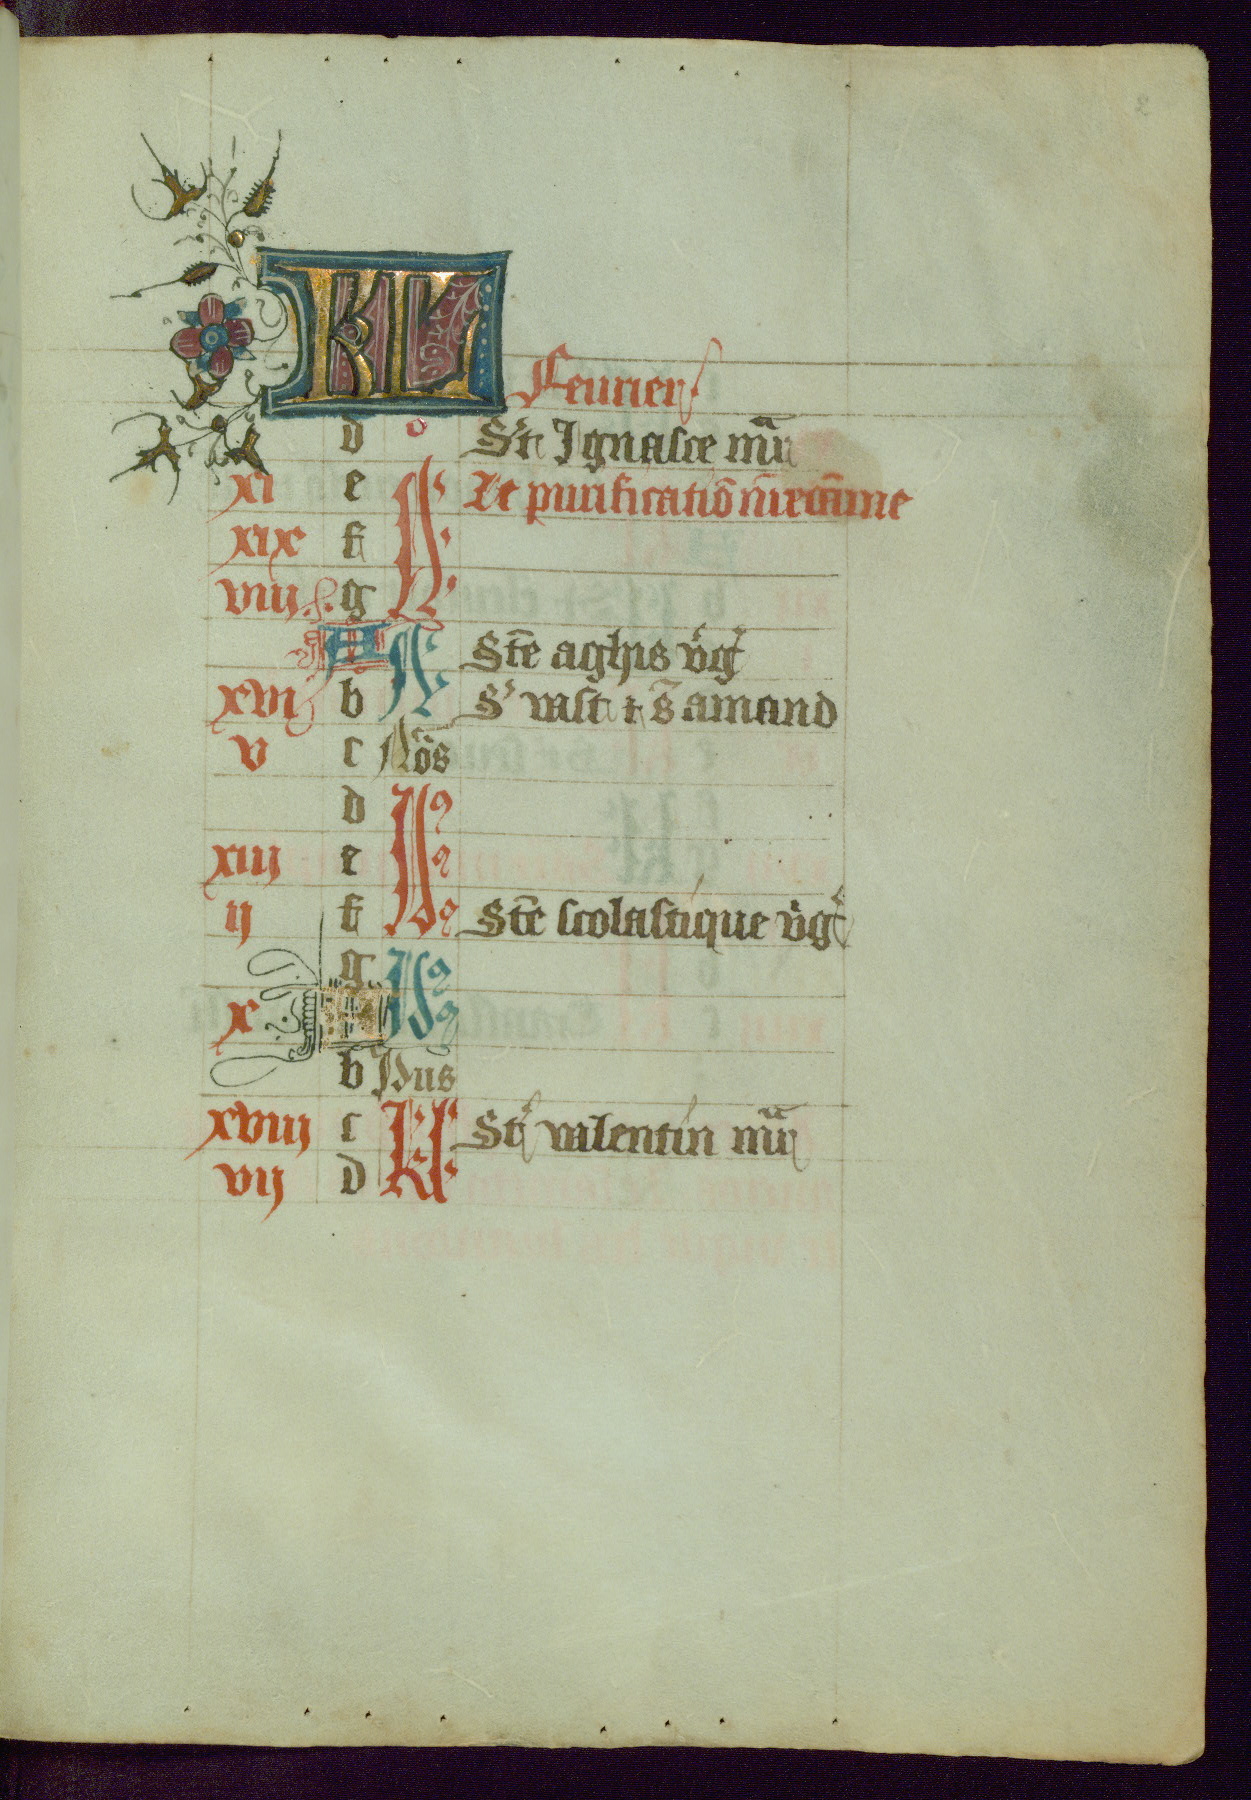 2
KL
Feurier
d St Ignasce mr
xi e Le purification nre dame
xix f N
viii g
A N Ste aghis v'g'
xvi b S' vast & s amand
v c Nos
d
xiii e Id
ii f Ste scolastique v'g'
g Id
x A
b Ydus
xviii c kl St valentin mr
vii d